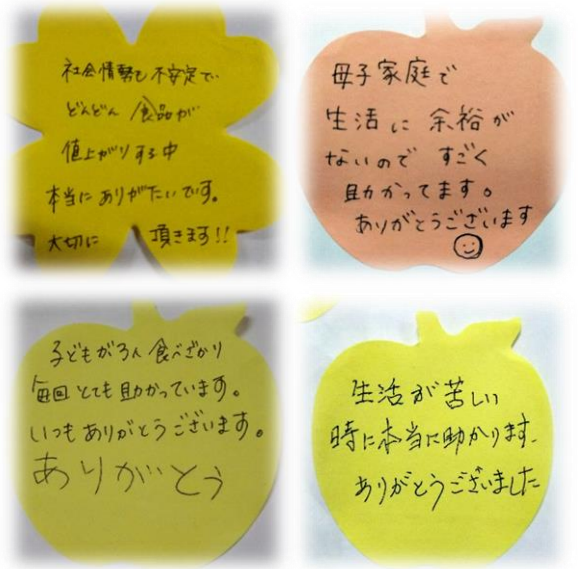 社会情勢も不安定で、
どんどん 食品が
値上がりする中
本当にありがたいです。
大切に 頂きます!!
母子家庭で
生活に 余裕が
ないので すごく
助かってます。
ありがとうございます
子どもが3人 食べざかり
毎回とても助かっています。
いつもありがとうございます。
ありがとう
生活が苦しい
時に本当に助かります、
ありがとうございました